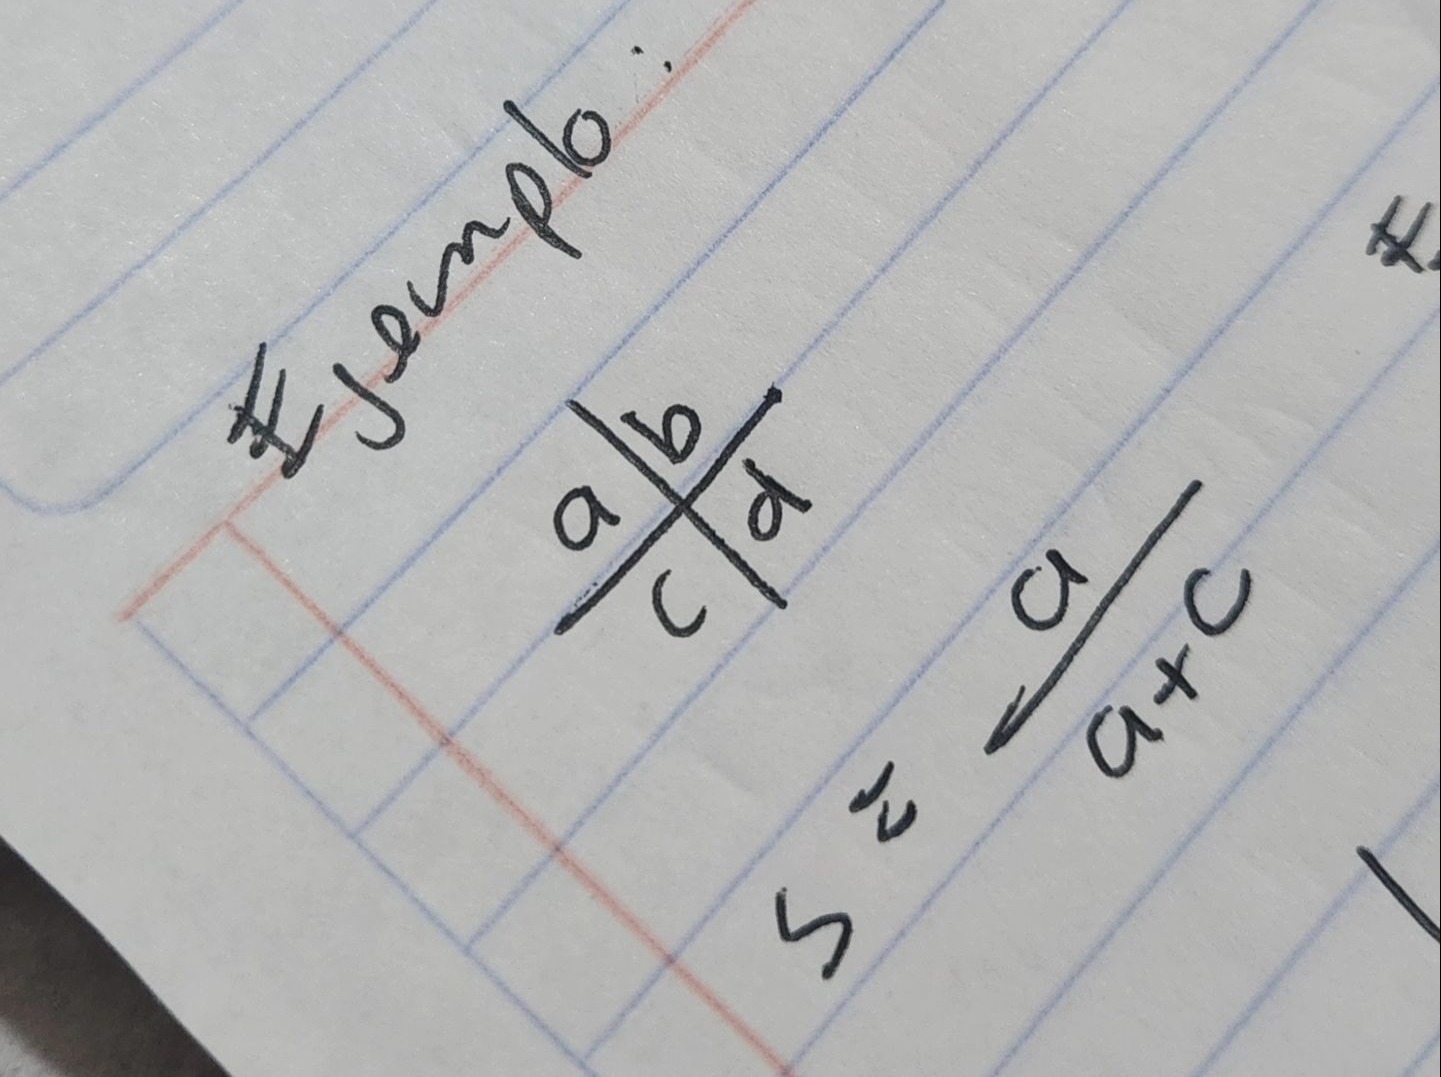 Ejemplo:
a b
c d
S = a
a+c